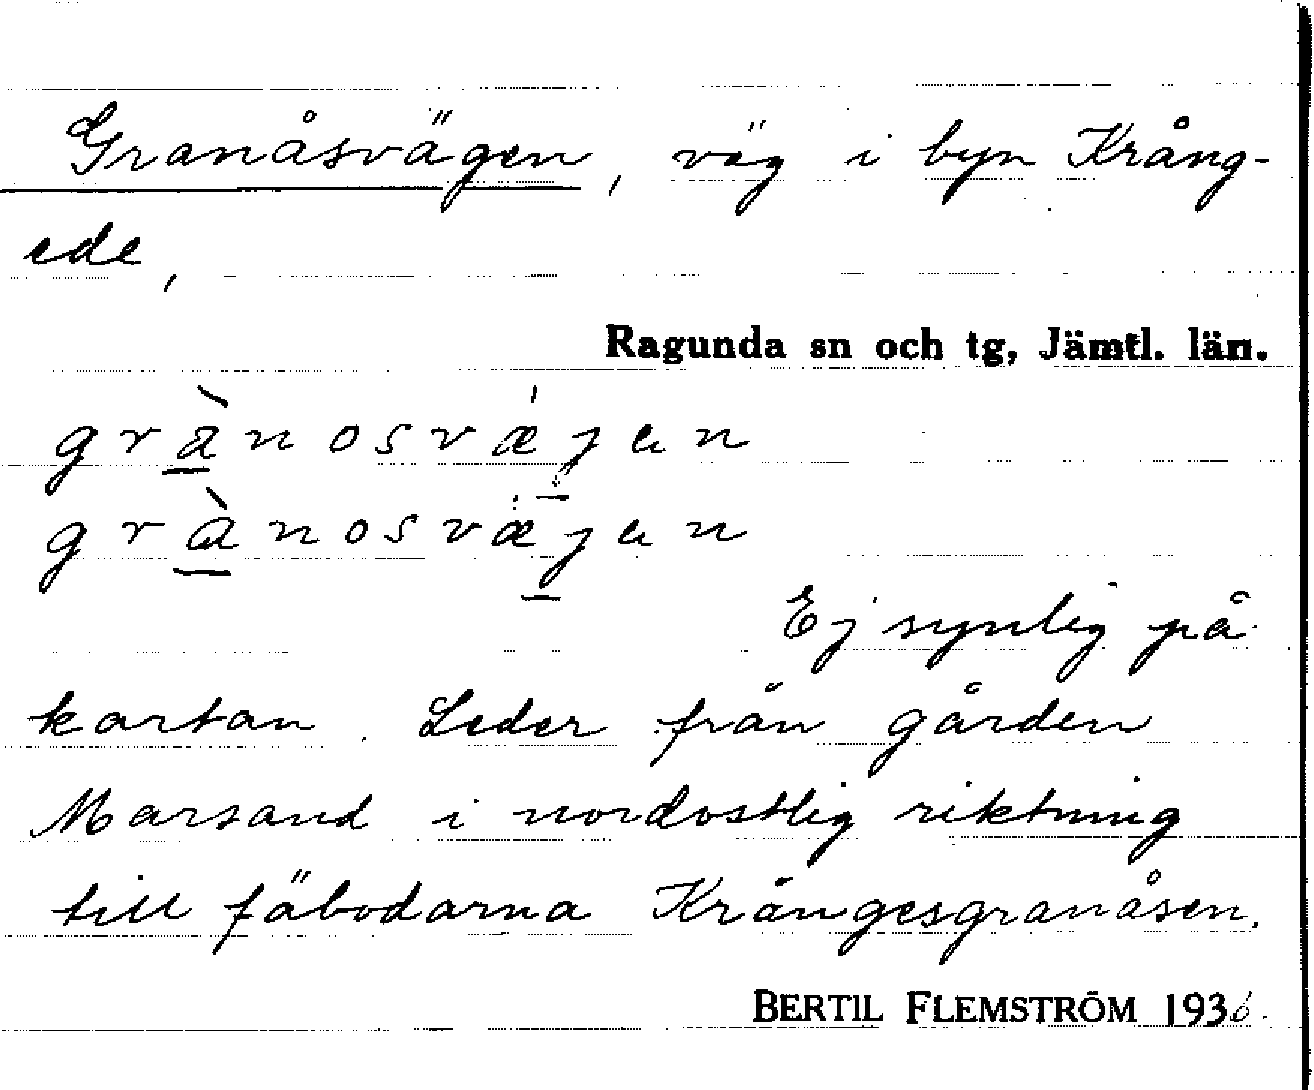 Granåsvägen, väg i byn Krång-
ede,
Ragunda sn och tg, Jämtl. län.
grànosvæ̍jen
grànosvæ̍jen
Ej synlig på
kartan. Leder från gården
Marsand i nordostlig riktning
till fäbodarna Krångesgranåsen.
BERTIL FLEMSTRÖM 1936.